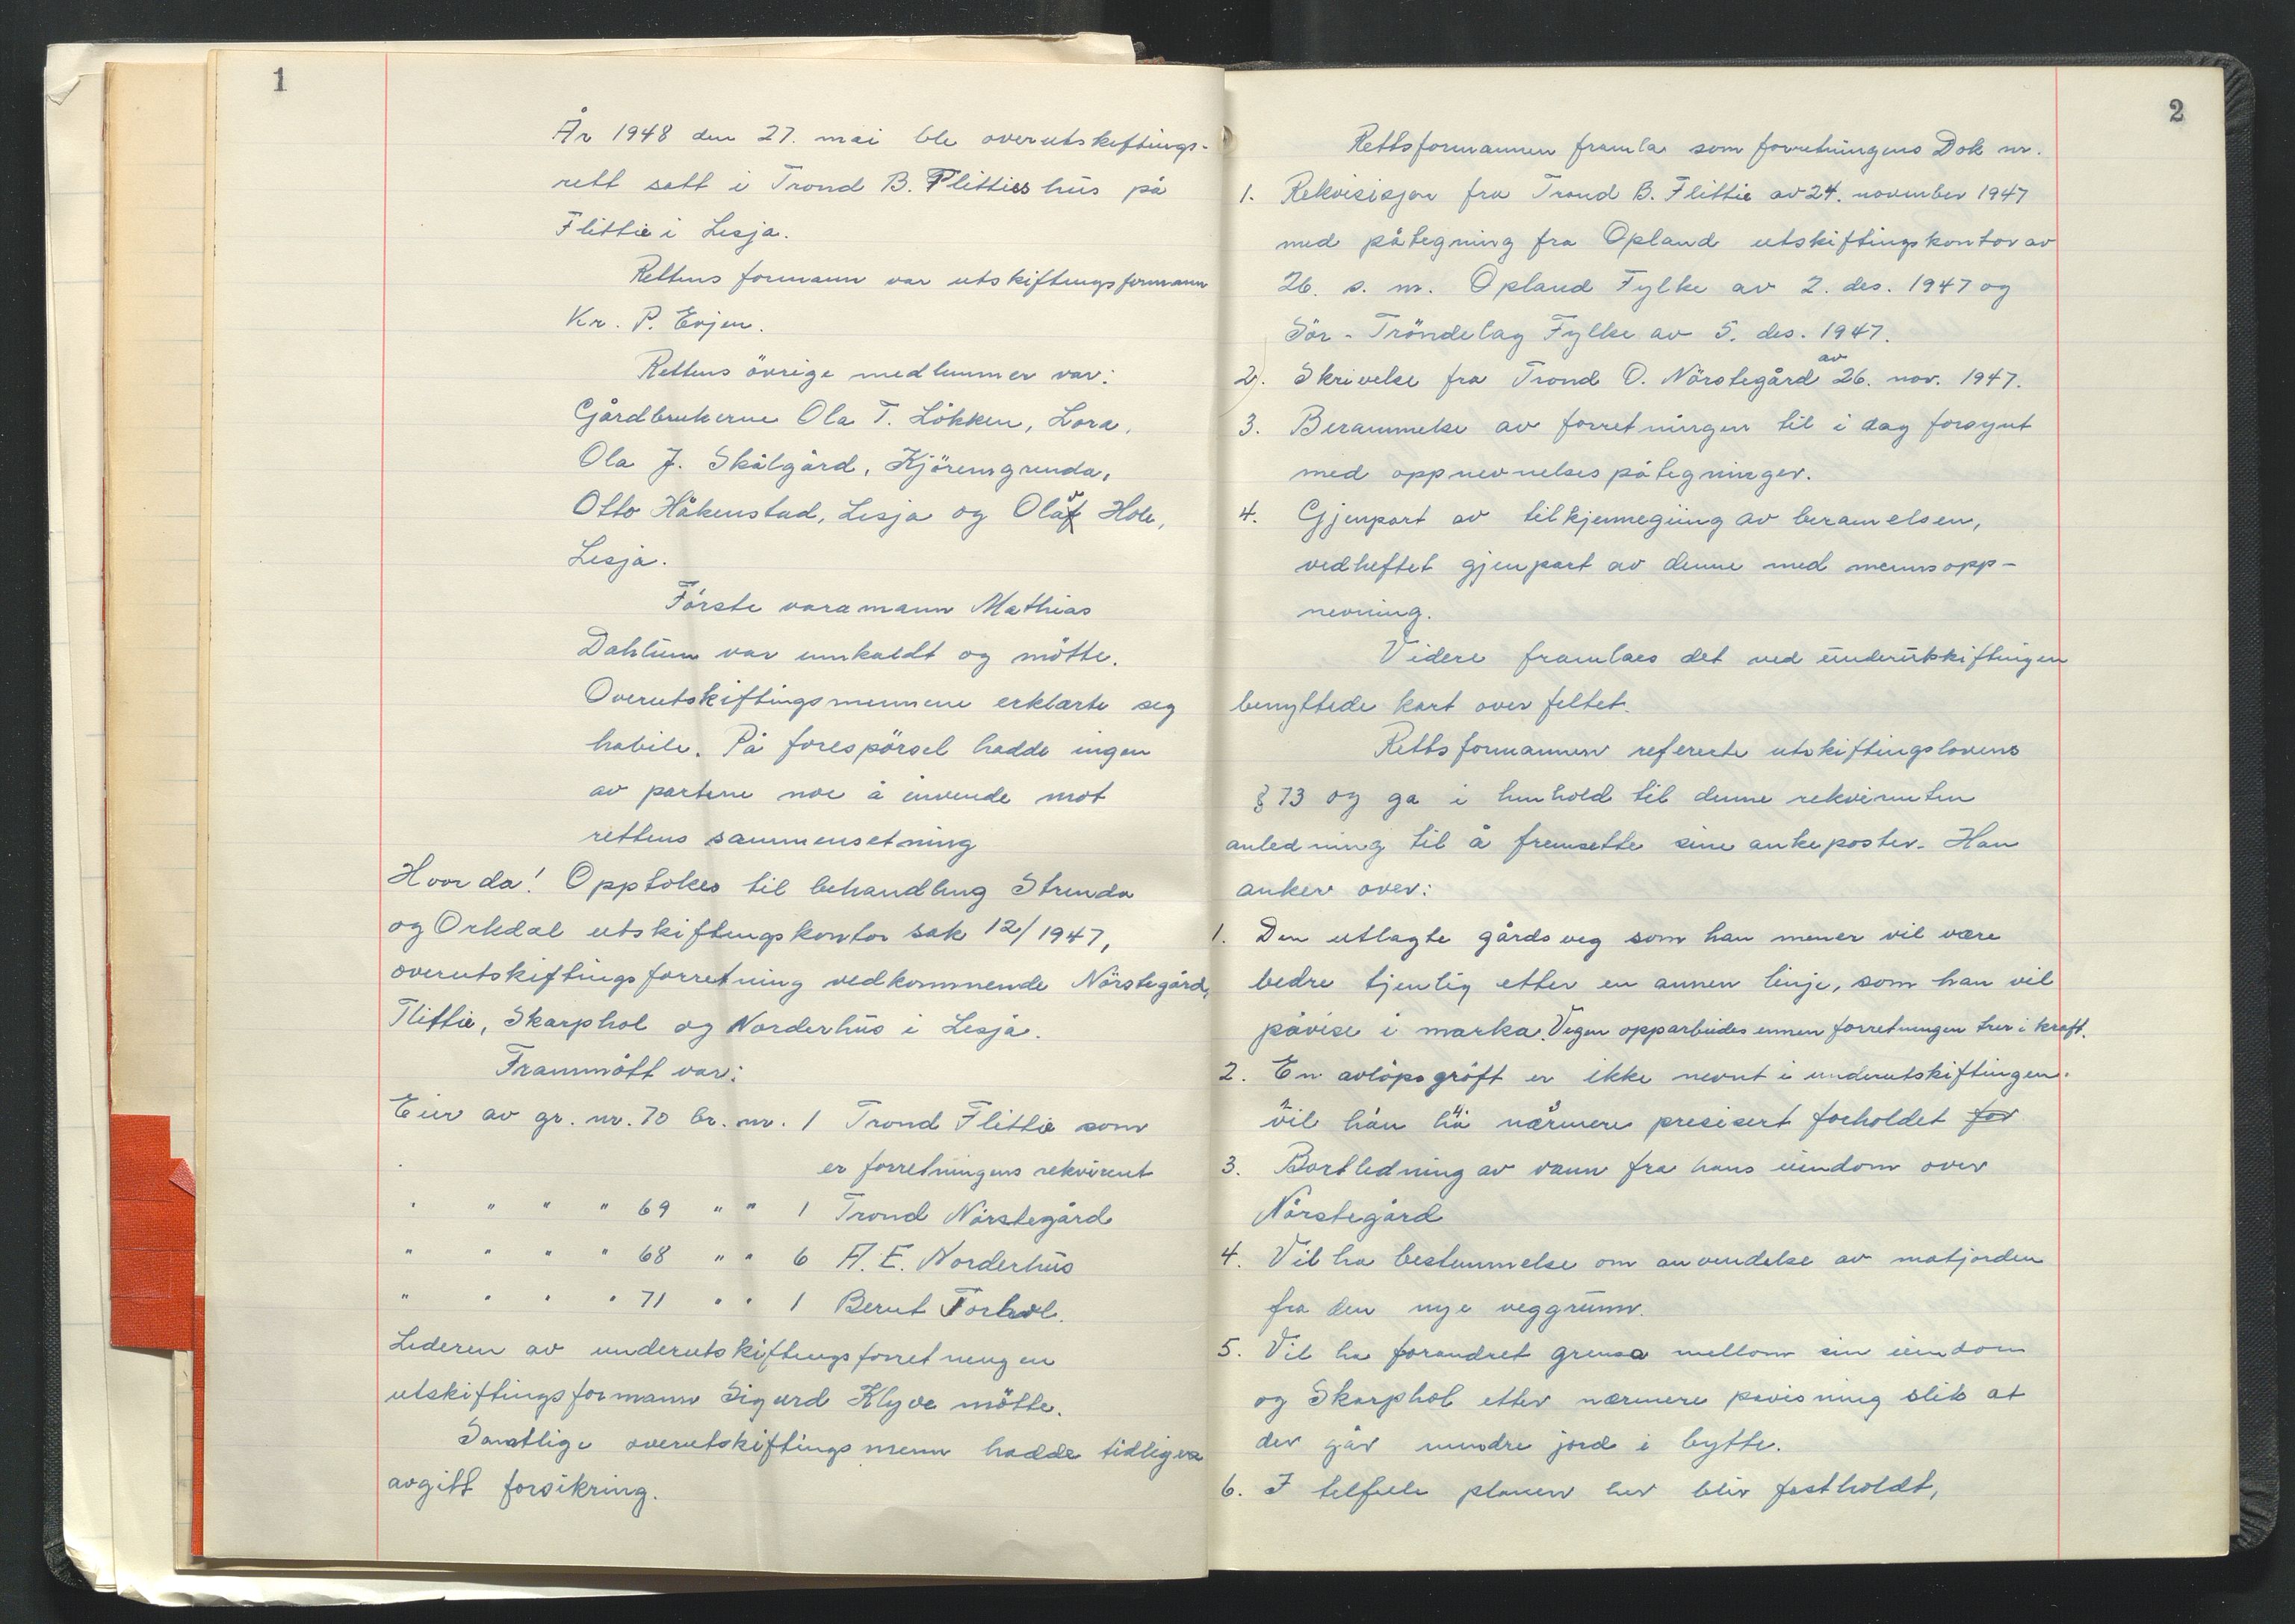 1
År 1948 den 27. mai ble overutskiftings-
rett satt i Trond B. Flitties hus på
Flittie i Lesja.
Rettens formann var utskiftingsformann
Kr. P. Evjen.
Rettens övrige medlemmer var:
Gårdbrukerne Ola T. Lökken, Lora,
Ola J. Skålgård, Kjöremsgrenda,
Otto Håkenstad, Lesja og Olav Hole,
Lesja.
Förste varamann Mathias
Dahlum var innkaldt og mötte.
Overutskiftingsmennene erklærte seg
habile. På forespörsel hadde ingen
av partene noe å invende mot
rettens sammensetning
Hvorda! Opptokes til behandling Strinda
og Orkdal utskiftingskontor sak 12/1947,
overutskiftingsforretning vedkommende Nörstegård,
Flittie, Skarphol og Norderhus i Lesja.
Frammött var:
Eier av gr. nr. 70 br. nr. 1 Trond Flittie som
er forretningens rekvirent
" " " " 69 " " 1 Trond Nörstegård
" " " " 68 " " 6 A. E. Norderhus
" " " " 71 " " 1 Bernt Forhol.
Lederen av underutskiftingsforretningen
utskiftingsformann Sigurd Klyve mötte.
Samtlige overutskiftingsmenn hadde tidligere
avgitt forsikring.
2
Rettsformannen framla som forretningens Dok nr.
1. Rekvisisjon fra Trond B. Flittie av 24. november 1947
med påtegning fra Opland utskiftingskontor av
26. s. m. Opland Fylke av 2. des. 1947 og
Sör-Tröndelag Fylke av 5. des. 1947.
2). Skrivelse fra Trond O. Nörstegård av 26. nov. 1947.
3. Berammelse av forretningen til i dag forsynt
med oppnevnelsespåtegninger.
4. Gjenpart av tilkjennegiing av beramelsen,
vedheftet gjenpart av denne med mennsopp-
nevning.
Videre framlaes det ved underutskiftingen
benyttede kart over feltet.
Rettsformannen refererte utskiftingslovens
§ 73 og ga i henhold til denne rekvirenten
anledning til å fremsette sine ankeposter. Han
anker over:
1. Den utlagte gårdsveg som han mener vil være
bedre tjenlig etter en annen linje, som han vil
påvise i marka. Vegen opparbeides innen forretningen trer i kraft.
2. En avlöpsgröft er ikke nevnt i underutskiftingen.
vil han ha nærmere presisert forholdet for
3. Bortledning av vann fra hans eiendom over
Nörstegård
4. Vil ha bestemmelse om anvendelse av matjorden
fra den nye veggrunn.
5. Vil ha forandret grensa mellom sin eiendom
og Skarphol etter nærmere påvisning slik at
der går mindre jord i bytte.
6. I tilfelle planen her blir fastholdt,